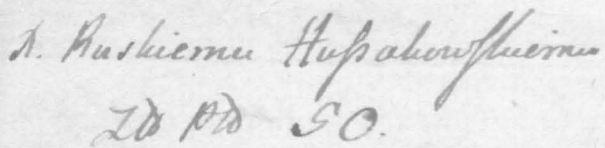 X. Ruskiemu Hussakowskiemu
Zło Pło 50.